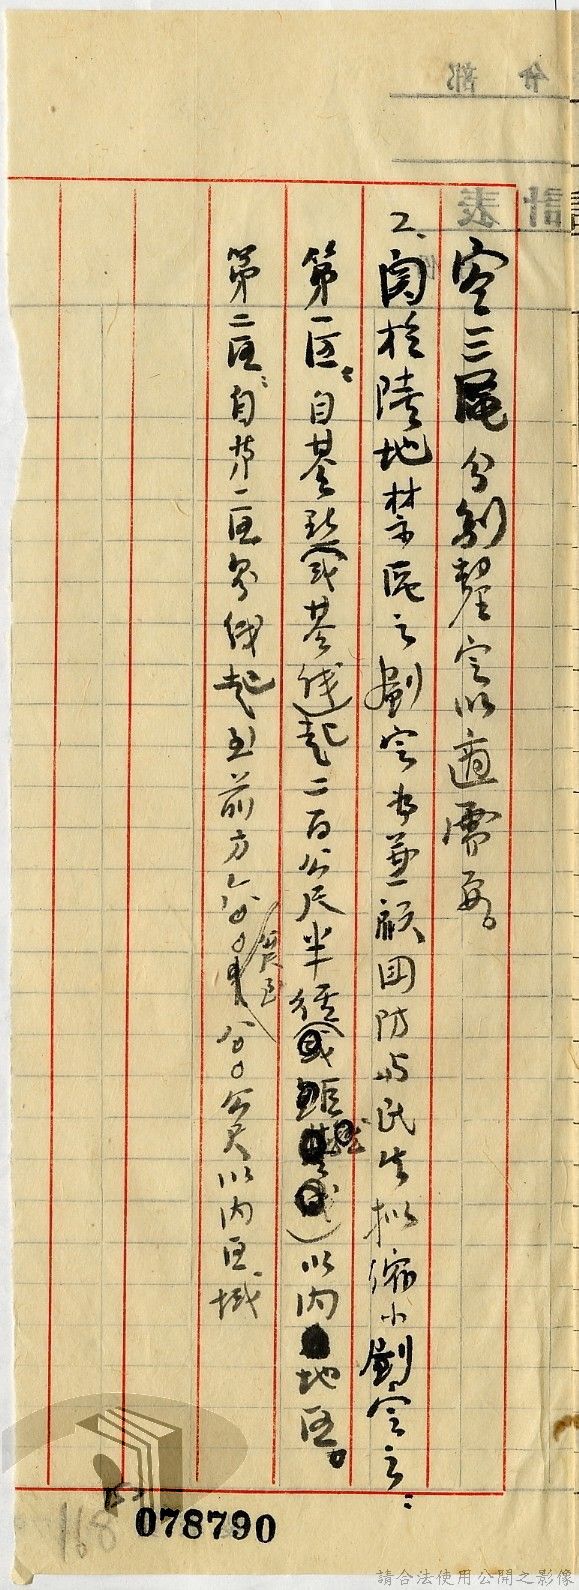 空三區分別釐定以適需要。
2、關於陸地禁區之劃定為兼顧國防与民生拟縮小劃定之：
第一區：自基點（或基线）起二百公尺半徑（或距）以內地區。
第二區：自第一區界线起至前方公尺以內区域
078790
168
請合法使用公開之影像
計表
令部